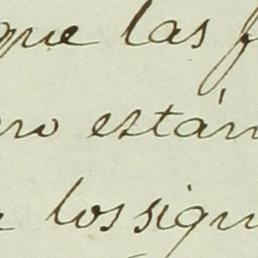 que las f
ro están
los sign